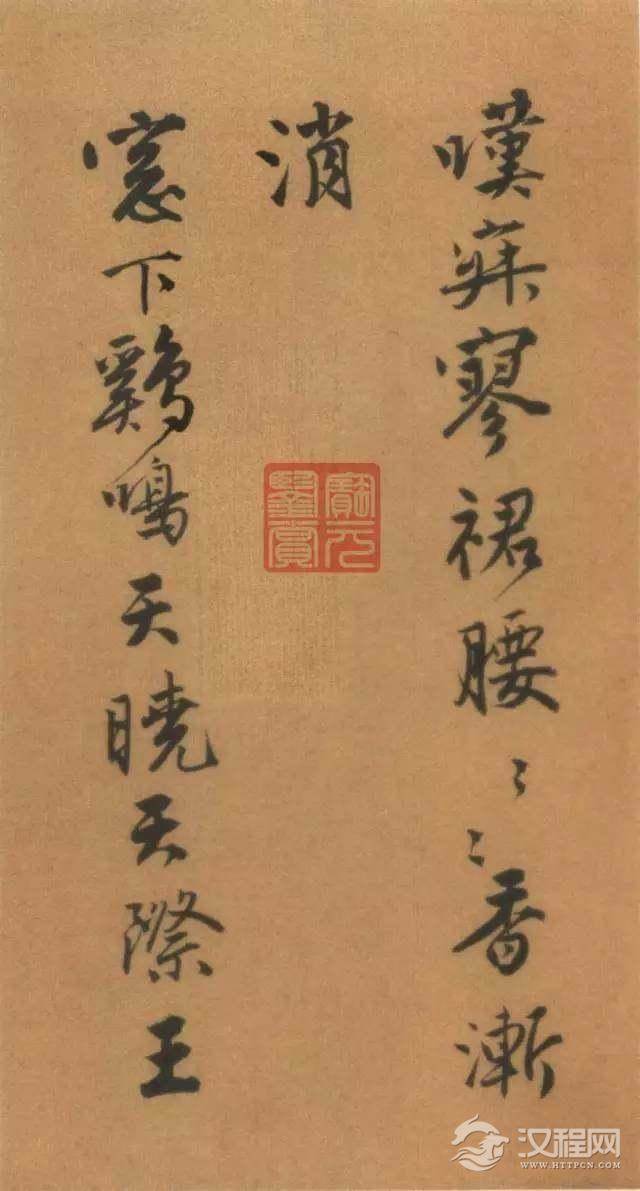 嘆寐寥裙腰〻〻香漸
消
窓下鷄鳴天曉天際王
寶元
鑒賞
汉程网
WWW.HTTPCN.COM